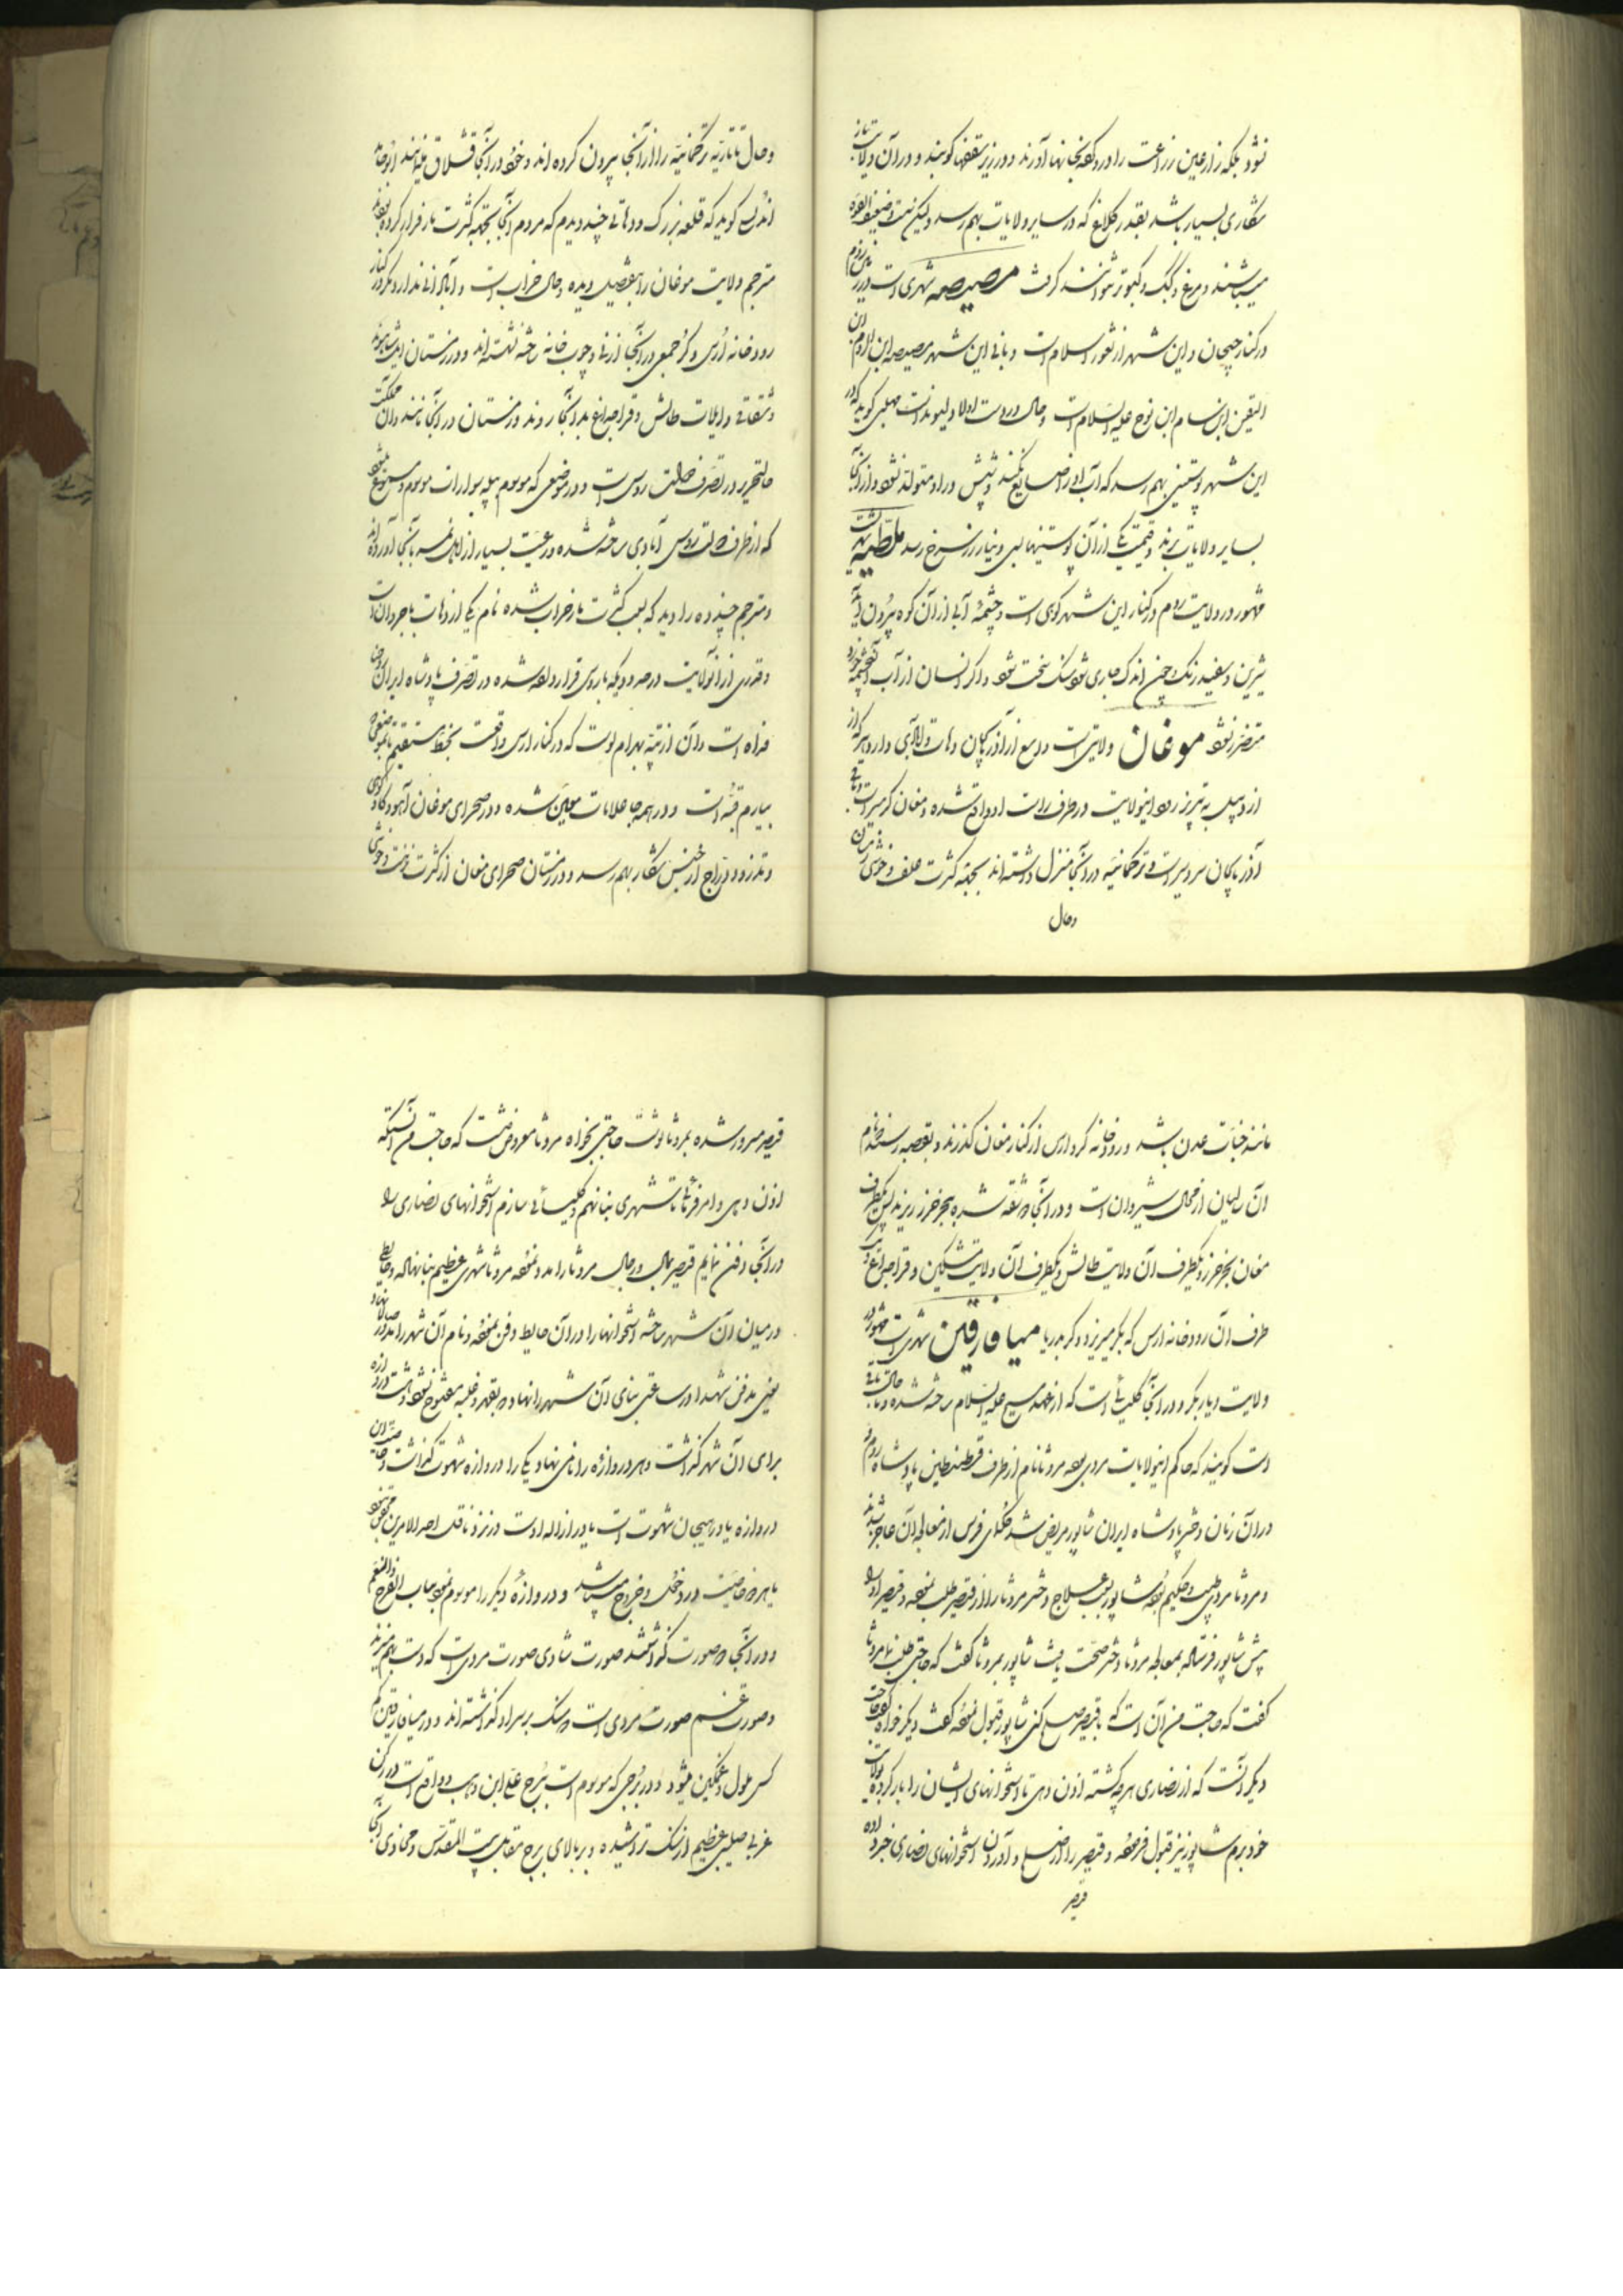 نشود بلکه زارعین زراعت را درو کرده بخانها آورند و در زیر سقفها کوبند و در آن ولایت باز
شکاری بسیار باشد بقدر کلاغ که در سایر ولایات بهم رسد ولیکن نیت وضعیف القوه
میباشند و مرغ و کبک و کبوتر نتوانند گرفت مصیصه شهری است در زمین روم
در کنار جیحان و این شهر از ثغور اسلام است و بانی این شهر مصیصه ابن الروم ابن
الیقن ابن سام ابن نوح علیه السلام است و حال در دست اولاد لیون است مهلبی گوید که در
این شهر پوستینی بهم رسد که آب او را ضایع نکند و شپش در او متولد نشود و از آنجا
بسایر ولایات برند و قیمت یکی از آن پوستینها بسی دینار زر سرخ رسد ملطیه شهریست
مشهور در ولایت روم در کنار این شهر کوهی است و چشمه آبی از آن کوه بیرون آید
شیرین و سفید رنگ و چون اندک جاری شود سنگ سخت شود و اگر انسان از آب آنچشمه خورد
متضرر نشود موغان ولایتی است واسع از آذربیکان و دهات و لاآبی دارد هر که از
اردبیل به تبریز رود اینولایت در طرف راست او واقع شده و مغان گرمسیر است و باقی
آذربایکان سردسیر است و ترکمانیه در آنجا منزل داشته اند بجهة کثرت علف و خوشی زمستان
وحال
وحال تاتاریه ترکمانیه را از آنجا بیرون کرده اند و خود در آنجا قشلاق مینمایند ابوحامد
اندلسی گوید که قلعه بزرگ و دهاتی چند دیدم که مردم آنجا بجهة کثرت مار فرار کرده بودند
مترجم ولایت موغان را بتفصیل دیده و حال خراب است و آبادانی ندارد مگر در کنار
رودخانه ارس و کر جمعی در آنجا از نی و چوب خانه ساخته نشسته اند و در زمستان ایل شاهسوند
و شقاقی و ایلات طالش و قراجه داغ بدانجا روند و زمستان در آنجا مانند و آن مملکت
حالتحریر در تصرف دولت روس است و در موضعی که موسوم به پیله سوار است موسوم و مسموع میشود
که از طرف دولت روس آبادی ساخته شده و رعیت بسیار از اهالی نمسه بآنجا آورده اند
و مترجم چند ده را دید که بسبب کثرت مار خراب شده نام یکی از دهات باجروان است
و قدری از آنولایت در حدودیکه با روس قرارداده شده در تصرف پادشاه ایران روحنا
فداه است و آن از تپه بهرام لوست که در کنار ارس واقعست بخط مستقیم تا بموضعی
بیارم قبّه است و در همه جا علامات معیّن شده و در صحرای موغان آهو و گاو کوهی
و تذرو و درّاج از جنس شکار بهم رسد و در زمستان صحرای مغان از کثرت نزهت و خوشی
مانند جنّات عدن باشد و رودخانه کر و ارس از کنار مغان گذرند و بقصبه رسند نام
آن سالیان از محال شیروان است و در آنجا دو شقّه شده ببحر خزر ریزند پس یکطرف
مغان بحر خزر و یکطرف آن ولایت طالش و یکطرف آن ولایت مشکین و قراجه داغ و یک
طرف آن رودخانه ارس که بکر میریزد و کر بدریا میافارقین شهری است مشهور در
ولایت دیاربکر و در آنجا کلیسائی است که از عهد مسیح علیه السلام ساخته شده و تا حال باقی
است گویند که حاکم اینولایات مردی بود مروثا نام از طرف قسطنطین پادشاه روم و
در آن زمان دختر پادشاه ایران شاپور مریض شد حکمای فرس از معالجه آن عاجز شدند
و مروثا مردی طبیب و حکیم بود شاپور بسبب علاج دختر مروثا را از قیصر طلب نموده و قیصر او را
پیش شاپور فرستاده بمعالجه مروثا دختر صحّت یافت شاپور بمروثا گفت که حاجتی طلب نما مروثا
گفت که حاجت من آن است که با قیصر صلح کنی شاپور قبول نموده گفت دیگر خواه گفت حاجت
دیگر آنست که از نصاری هرچه کشته اذن دهی تا استخوانهای ایشان را بار کرده بولایت
خود برم شاپور نیز قبول فرموده و قیصر را از صلح و آوردن استخوانهای نصاری خبر داده
قیصر
قیصر مسرور شده بمروثا نوشت حاجتی بخواه مروثا معروض داشت که حاجت من آنستکه
اذن دهی و امر فرمائی تا شهری بنا نهم و کلیسائی سازم و استخوانهای نصاری را
در آنجا دفن نمایم قیصر بمال و رجال مروثا را مدد نموده مروثا شهری عظیم بنا نهاده و حایطی
در میان آن شهر ساخته و استخوانها را در آن حایط دفن نموده و نام آن شهر را مدورصالا نهاد
یعنی مدفن شهدا و در ساعتی بنای آن شهر را نهاد که بقهر و غلبه مفتوح نشود و هشت دروازه
برای آن شهر گذاشت و هر دروازه را نامی نهاد یکی را دروازه شهوت گذاشت و خاصیت آن
دروازه یا در هیجان شهوت است یا در ازاله او است و نزد ناقل احد الامرین محقق نبود
یا هر دو خاصیت در دخول و خروج میباشد و دروازه دیگر را موسوم نمود بباب الفرح و الغم
و در آنجا دو صورت گذاشتند صورت شادی صورت مردی است که دست بهم میزند
و صورت غم صورت مردی است و سنگ بر سر او گذاشته اند و در میافارقین کم
کسی ملول و غمگین میشود و در برجی که موسوم است ببرج علی ابن وهب و واقع است در رکن
غربی صلیبی عظیم از سنگ تراشیده و بر بالای برج مقابل بیت المقدس و محاذی آنجا